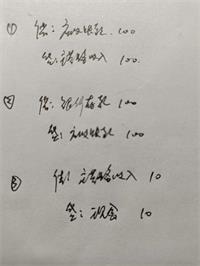 ① 借：应收账款 100
贷：主营业务收入 100
② 借：银行存款 100
贷：应收账款 100
③ 借：主营业务收入 10
贷：现金 10